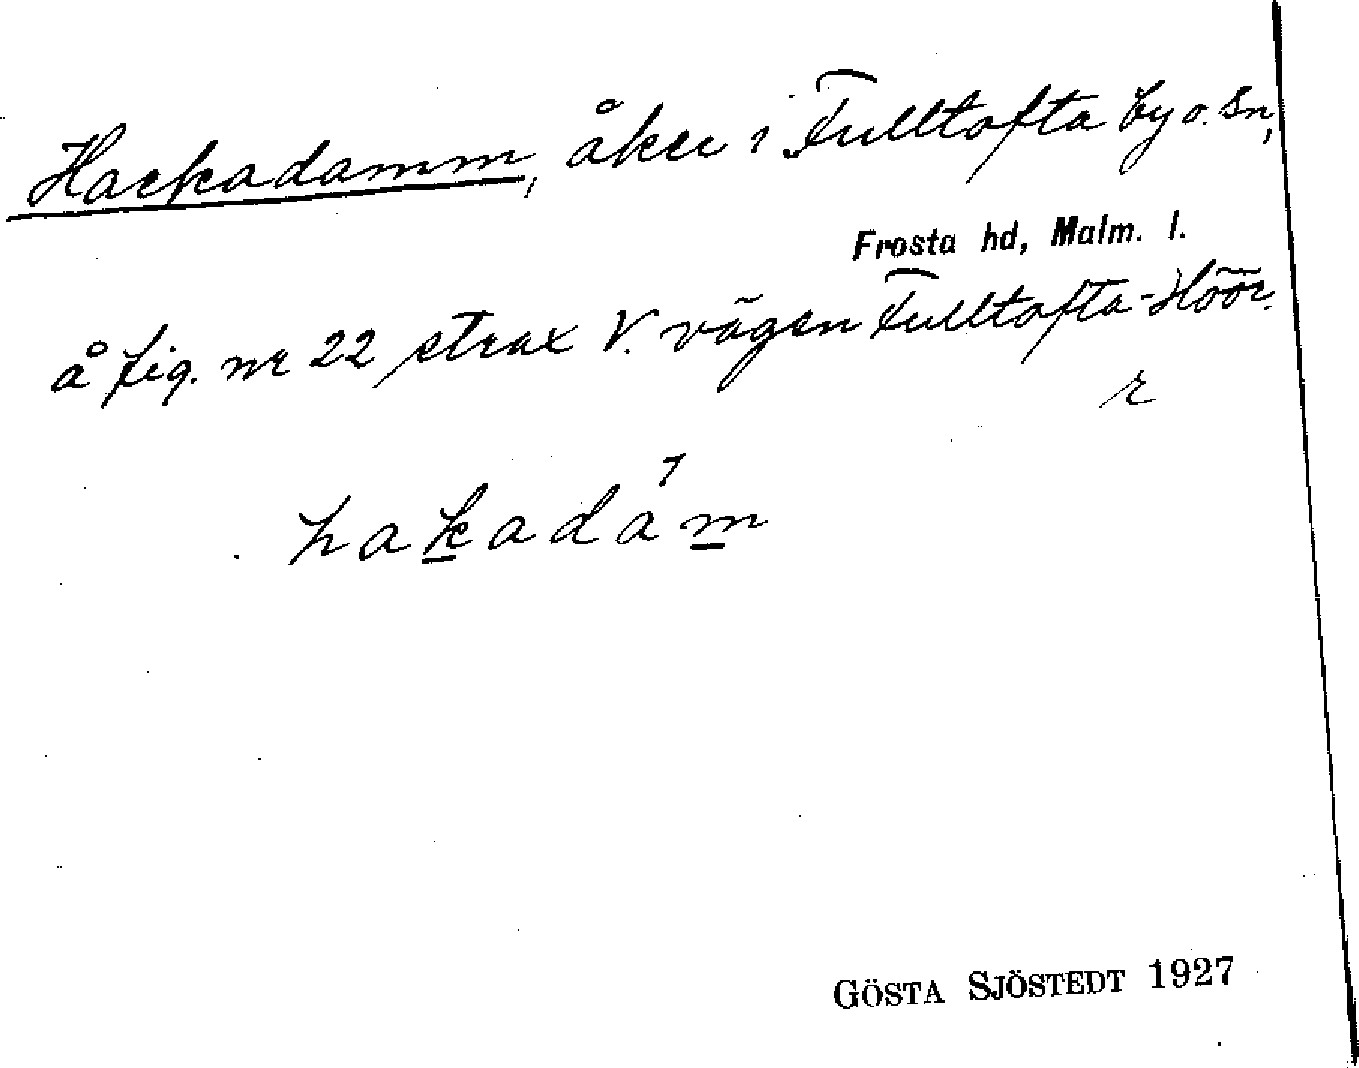 Hackadamm, åker i Fulltofta by o. sn,
Frosta hd, Malm. l.
å fig. nr 22 strax V. vägen Fulltofta-Höör.
r
hakadam
GÖSTA SJÖSTEDT 1927